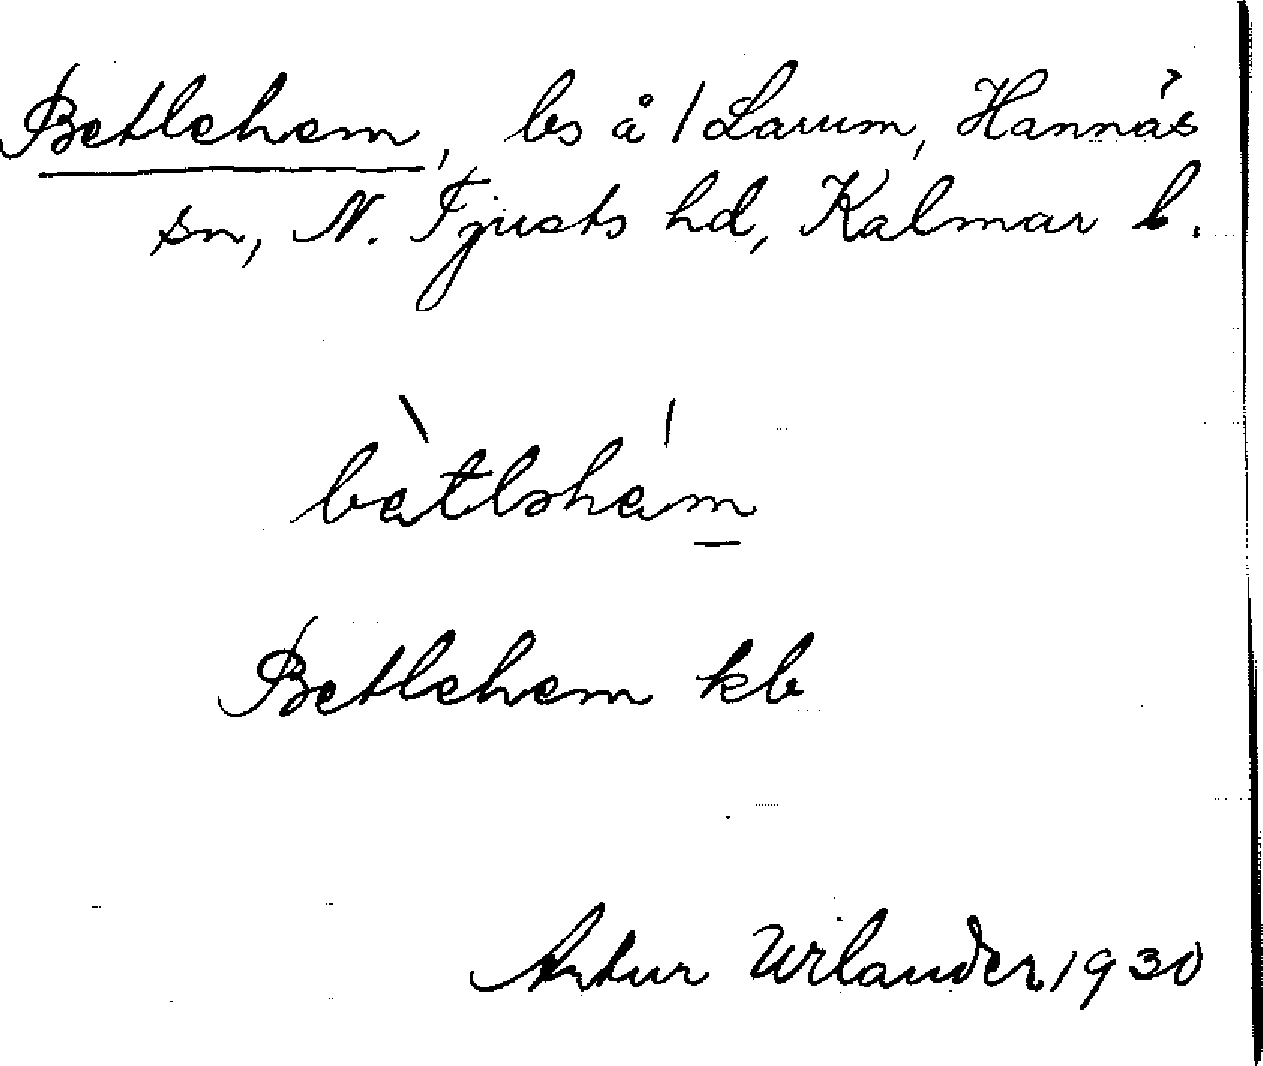 Betlehem, ls å / Larum, Hannäs
sn, N. Tjusts hd, Kalmar l.
bètlshém
Betlehem kb
Artur Urlander 1930